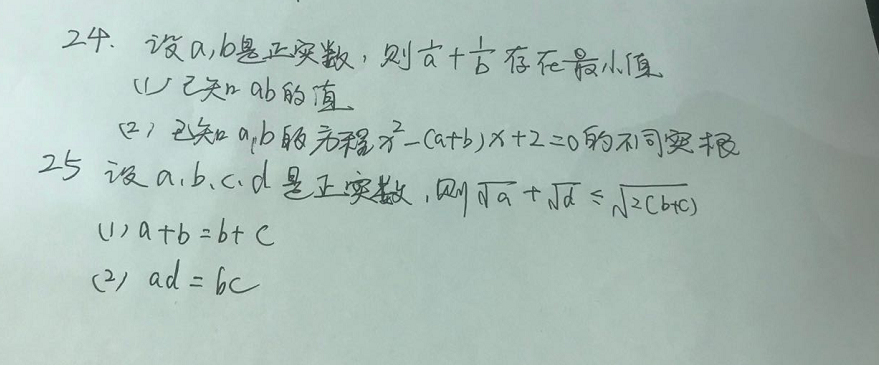 24. 设a,b是正实数,则1/a+1/b存在最小值
(1)已知ab的值
(2)已知a,b的方程x²-(a+b)x+2=0的不同实根
25 设a.b.c.d是正实数,则√a+√d≤√2(b+c)
(1) a+b=b+c
(2) ad=bc